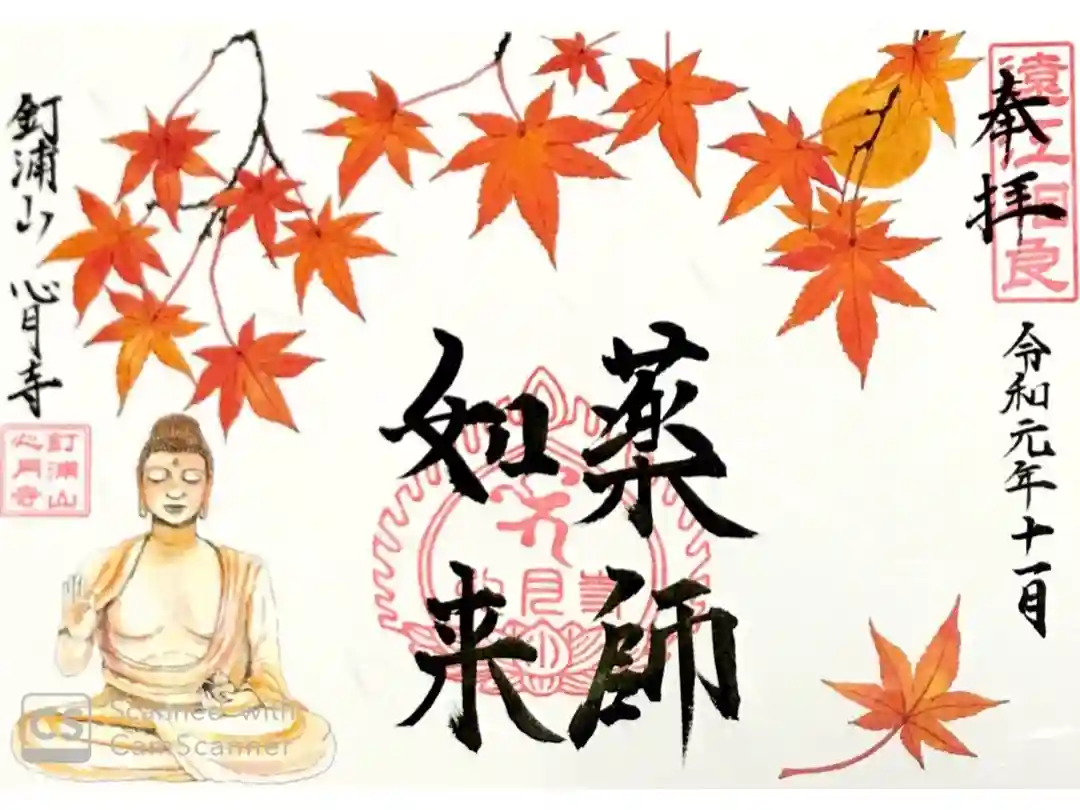 奉拝
遠江相良
令和元年十一月
薬師
如来
釘浦山 心月寺
釘浦山
心月寺
CS Scanned with
CamScanner